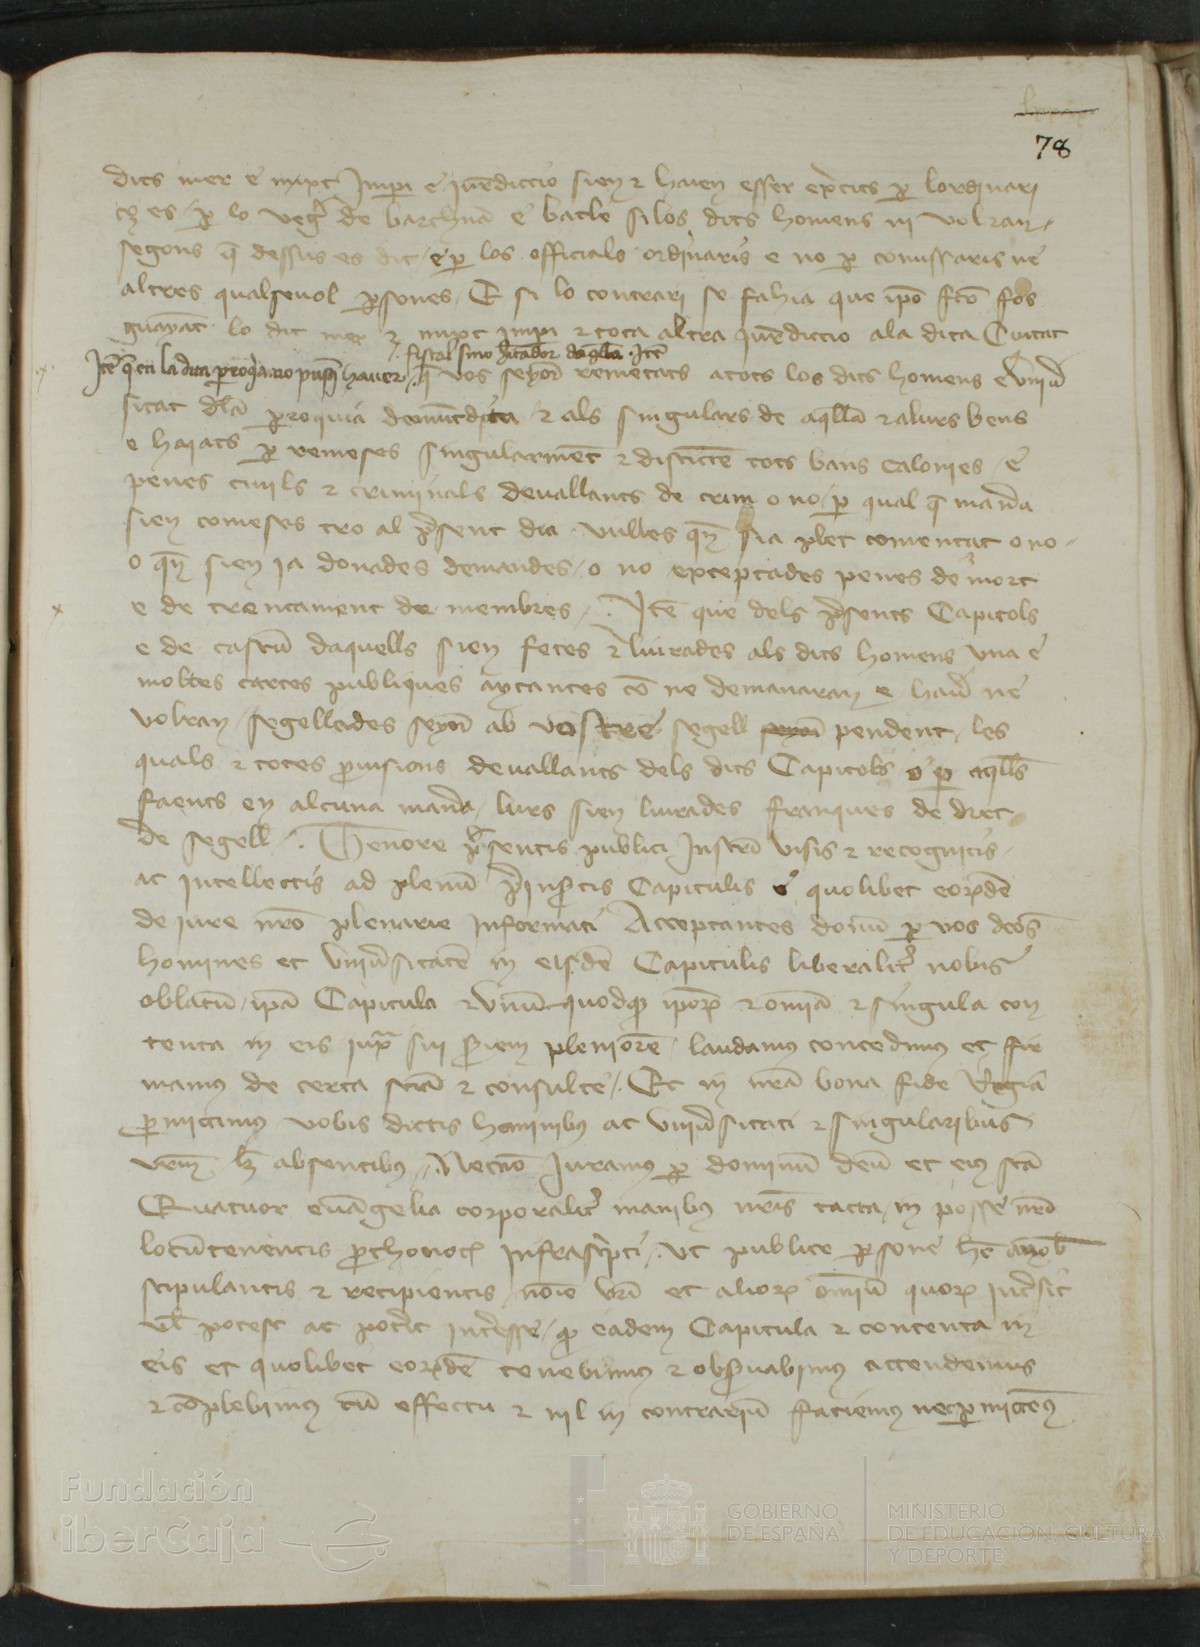 78
dits mer e mixt Imperi e jurediccio sien e hauen esser exercits per lordinari
ço es per lo veguer de barchna e batle silos dits homens ni volran
segons q dessus es dit e per los officials ordinaris e no per comissaris ne
altres qualseuol persones E si lo contrari se fahia que ipo fco fos
guayat lo dit mer e mixt imperi e tota altra jurediccio ala dita Ciutat
fiscal sino habitador daqlla Ite
Ite q en la dita parroquia no pusq hauer q vos senyor remetats atots los dits homens e vniuer
sitat dla parroquia e als singulars de aqlla e alurs bens
e haiats per remeses singularment e distincte tots bans calonies e
penes ciuils e criminals deuallants de crim o no per qual q manera
sien comeses tro al present dia vulles quen sia plet comentat o no
o quen sien ja donades demandes o no exceptades penes de mort
e de trencament de membres Ite que dels presents Capitols
e de cascu daquells sien fetes e liurades als dits homens vna e
moltes cartes publiques aytantes co ne demanaran e hauer ne
volran segellades senyor ab vostre segell pendent les
quals e totes prouisions deuallants dels dits Capitols o per aqlls
faents en alcuna manera lurs sien liurades franques de dret
de segell Tenore presentis publici Instri visis e recognitis
ac intellectis ad plenu preinsertis Capitulis e quolibet eorde
de iure nro plenarie informati Acceptantes donu per vos dcos
homines et vniuersitate in eisde Capitulis liberaliter nobis
oblatu ipa Capitula e vnuquodq ipor e omia e singula con
tenta in eis iuxta sui seriem pleniore laudamus concedimus et fir
mamus de certa scia e consulte Et in nra bona fide Regia
promittimus vobis dictis hominibus ac vniuersitati e singularibus
vrm lz absentibus Necno Iuramus per dominu deu et eius sca
Quatuor euangelia corporaliter manibus nris tacta in posse nri
locutenentis prothonoth infrascripti vt publice persone hec a nob
stipulantis e recipientis noie vri et alior omiu quor intersit
vl potest ac poterit interesse q eadem Capitula e contenta in
eis et quolibet eorde tenebimus e obseruabimus attendemus
e complebimus cu effectu e nil in contrariu faciemus nec permittems
Fundación
iberCaja
GOBIERNO
DE ESPAÑA
MINISTERIO
DE EDUCACIÓN, CULTURA
Y DEPORTE